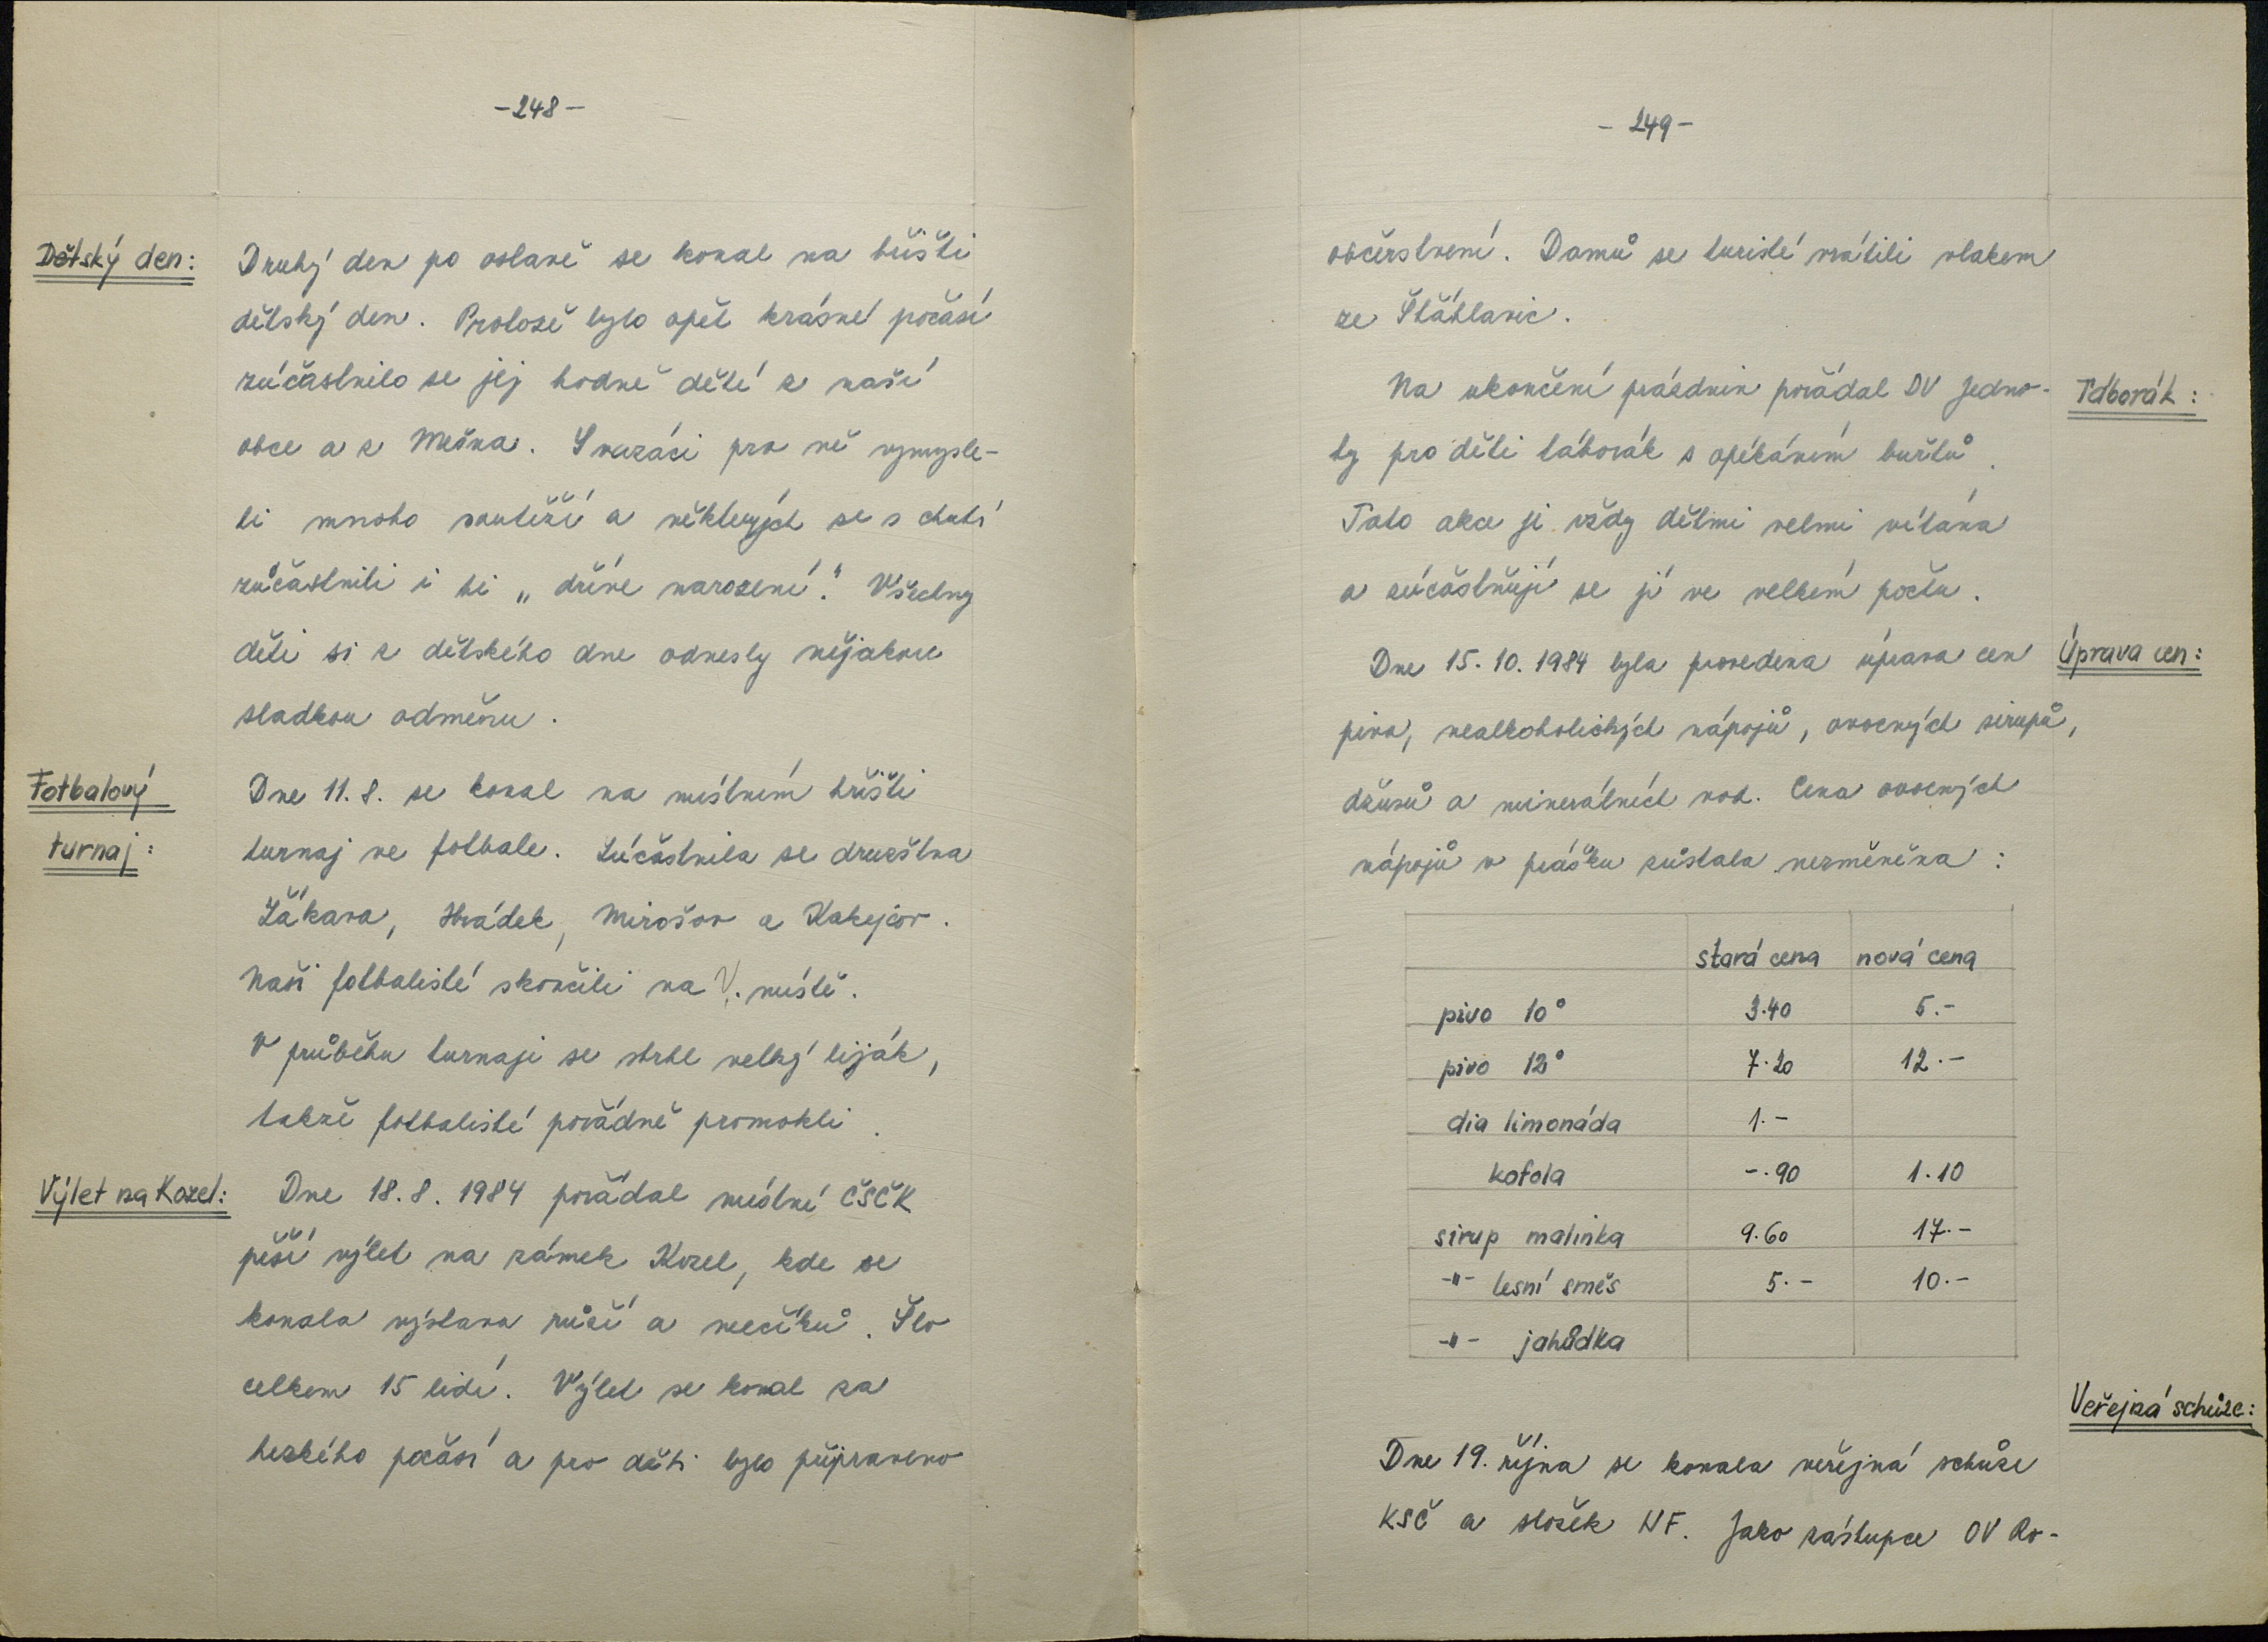 -248-
Dětský den:
Druhý den po oslavě se konal na hřišti
dětský den. Protože bylo opět krásné počasí
zúčastnilo se jej hodně dětí z naší
obce a z Mešna. Svazáci pro ně vymysle-
li mnoho soutěží a některých se s chutí
zůčastnili i ti „dříve narození". Všechny
děti si z dětského dne odnesly nějakou
sladkou odměnu.
Fotbalový
turnaj:
Dne 11. 8. se konal na místním hřišti
turnaj ve fotbale. Zúčastnila se družstva
Žákava, Hrádek, Mirošov a Kakejcov.
Naši fotbalisté skončili na V. místě.
V průběhu turnaje se strhl velký liják,
takže fotbalisté pořádně promokli.
Výlet na Kozel:
Dne 18. 8. 1984 pořádal místní ČSČK
pěší výlet na zámek Kozel, kde se
konala výstava růží a mečíků. Šlo
celkem 15 lidí. Výlet se konal za
hezkého počasí a pro děti bylo připraveno
- 249 -
občerstvení. Domů se turisté vrátili vlakem
ze Šťáhlavic.
Táborák:
Na ukončení prázdnin pořádal DV Jedno-
ty pro děti táborák s opékáním buřtů.
Tato akce je vždy dětmi velmi vítána
a zúčastňují se jí ve velkém počtu.
Úprava cen:
Dne 15. 10. 1984 byla provedena úprava cen
piva, nealkoholických nápojů, ovocných sirupů,
džusů a minerálních vod. Cena ovocných
nápojů v prášku zůstala nezměněna:
stará cena nová cena
pivo 10° 3.40 5.-
pivo 12° 7.20 12.-
dia limonáda 1.-
kofola -.90 1.10
sirup malinka 9.60 17.-
-"- lesní směs 5.- 10.-
-"- jahůdka
Veřejná schůze:
Dne 19. října se konala veřejná schůze
KSČ a složek NF. Jako zástupce OV Ro-